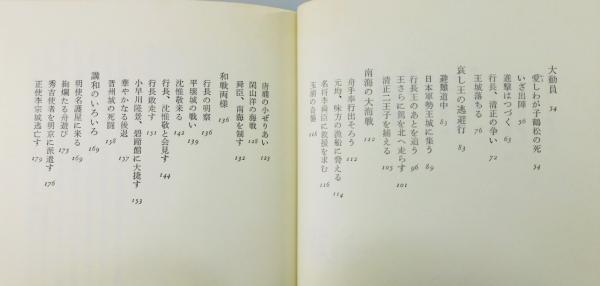 大動員 54
愛しわが子鶴松の死 54
いざ出陣 56
進撃はつづく 63
行長、清正の争い 72
王城落ちる 76
哀し王の逃避行 83
避難道中 83
日本軍勢王城に集う 89
行長王のあとを追う 96
王さらに駕を北へ走らす 101
清正二王子を捕える 105
南海の大海戦 112
舟手奉行出そろう 112
元均、味方の漁船に脅える 114
名将李舜臣に救援を求む 116
玉浦の奇襲 118
唐磯の小ぜりあい 123
閑山洋の海戦 128
舜臣、南海を制す 132
和戦両様 136
行長の明察 136
平壌城の戦い 139
沈惟敬来る 142
行長、沈惟敬と会見す 144
行長敗走す 151
小早川隆景、碧蹄館に大捷す 153
華やかなる後退 157
晋州城の死闘 158
講和のいろいろ 169
明使名護屋に来る 169
絢爛たる舟遊び 173
秀吉使者を明京に派遣す 176
正使李宗城逃亡す 179